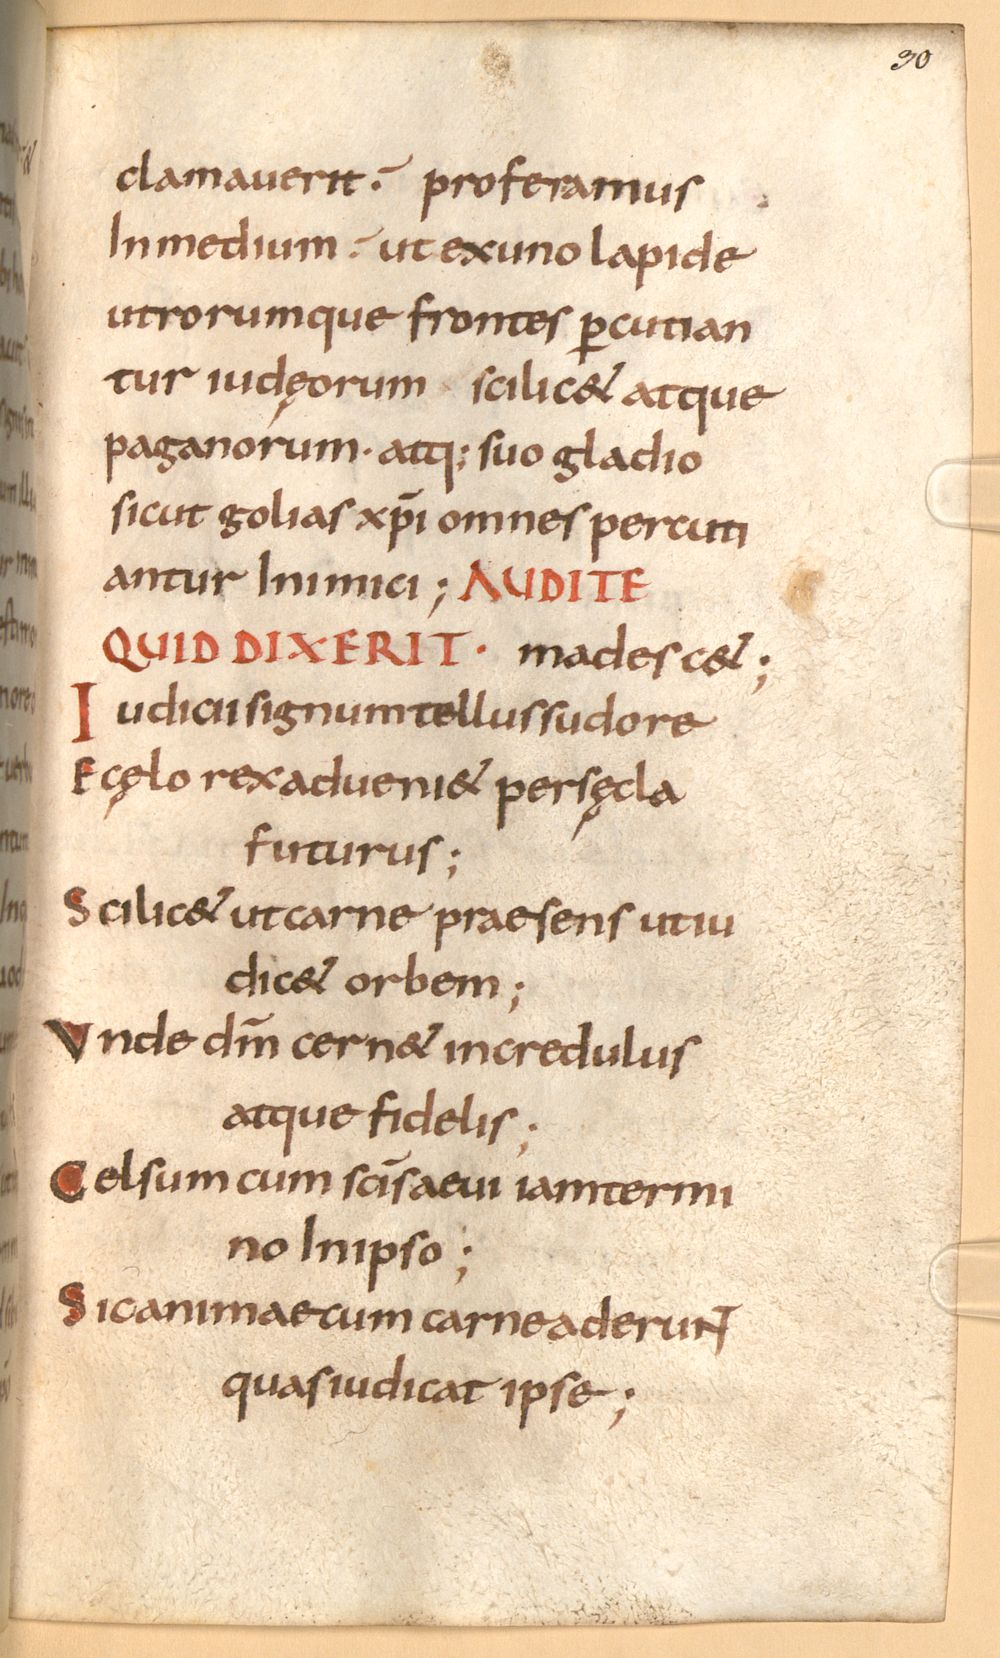 30
clamauerit : proferamus
In medium : ut ex uno lapide
utrorumque frontes ꝑcutian
tur iudęorum scilic& atque
paganorum · atq; suo gladio
sicut golias xp̄i omnes percuti
antur Inimici ; AUDITE
QUID DIXERIT · madesc& ;
Iudicii signum tellus sudore
E cęlo rex adueni& per sęcla
futurus ;
Scilic& ut carne praesens ut iu
dic& orbem ;
Vnde dm̄ cern& incredulus
atque fidelis ;
Celsum cum sc̄is aeui iam termi
no In ipso ;
Sic animae cum carne aderunt
quas iudicat ipse ;